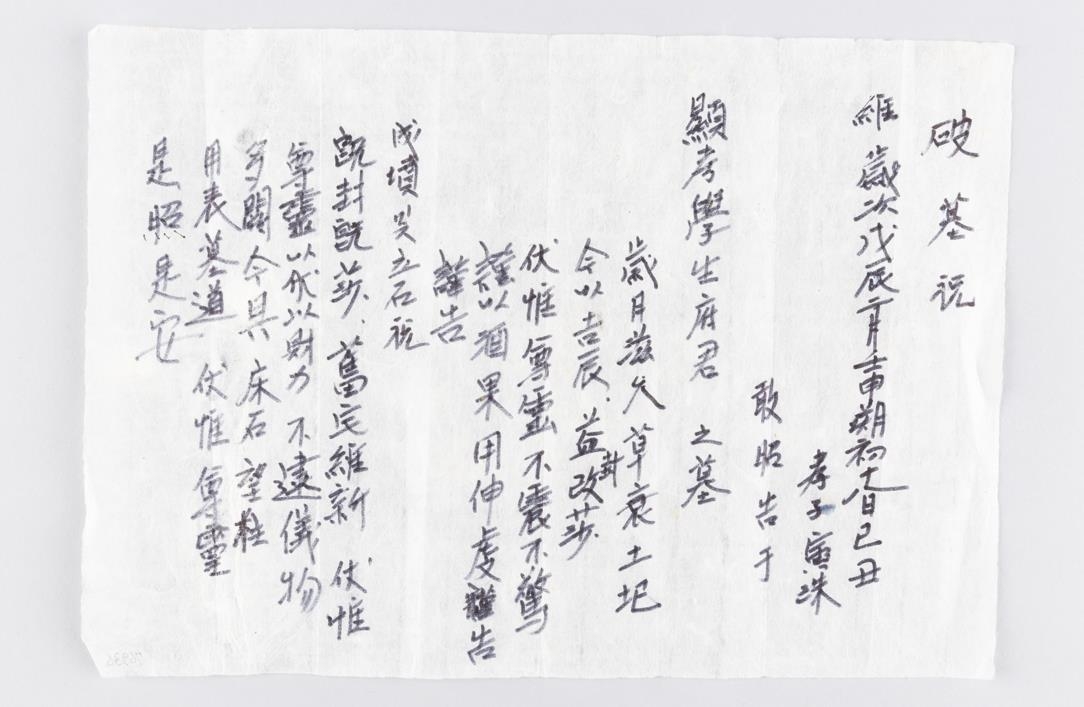 破墓祝
維 歲次戊辰二月壬申朔初十八日己丑
孝子寅洙
敢昭告于
顯考學生府君 之墓
歲月滋久 草衰土圮
今以吉辰 益封改莎
伏惟尊靈不震不驚
謹以酒果用伸虔謹告
謹告
成墳및立石祝
旣封旣莎 舊宅維新 伏惟
尊靈以代以財力 不逮儀物
多闕 今具床石 望柱
用表墓道 伏惟尊靈
是照是安